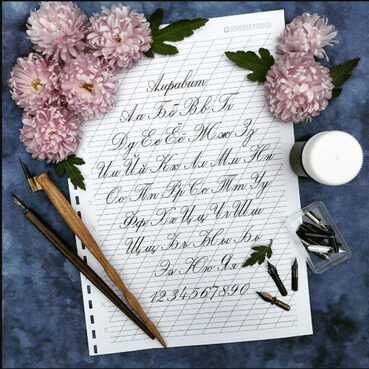 Алфавит
Аа Бб Вв Гг
Дд Ее Её Жж Зз
Ии Йй Кк Лл Мм Нн
Оо Пп Рр Сс Тт Уу
Фф Хх Цц Чч Шш
Щщ Ъъ Ыы Ьь
Ээ Юю Яя
1234567890